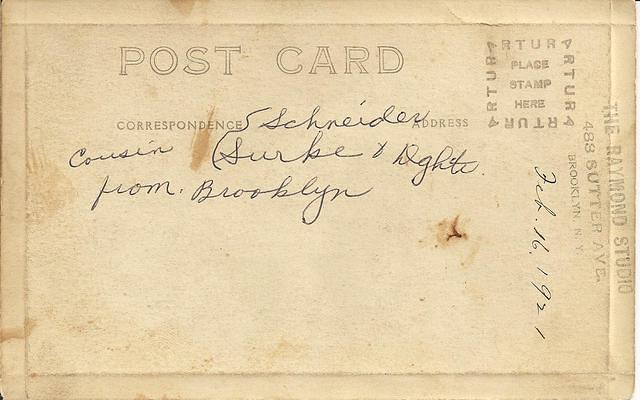 POST CARD
ARTURA
ARTURA
PLACE
STAMP
HERE
ARTURA
ARTURA
CORRESPONDENCE
ADDRESS
Schneider
Cousin Surke & Dghts.
from. Brooklyn
Feb. 16. 1921
THE RAYMOND STUDIO
483 SUTTER AVE.
BROOKLYN N.Y.